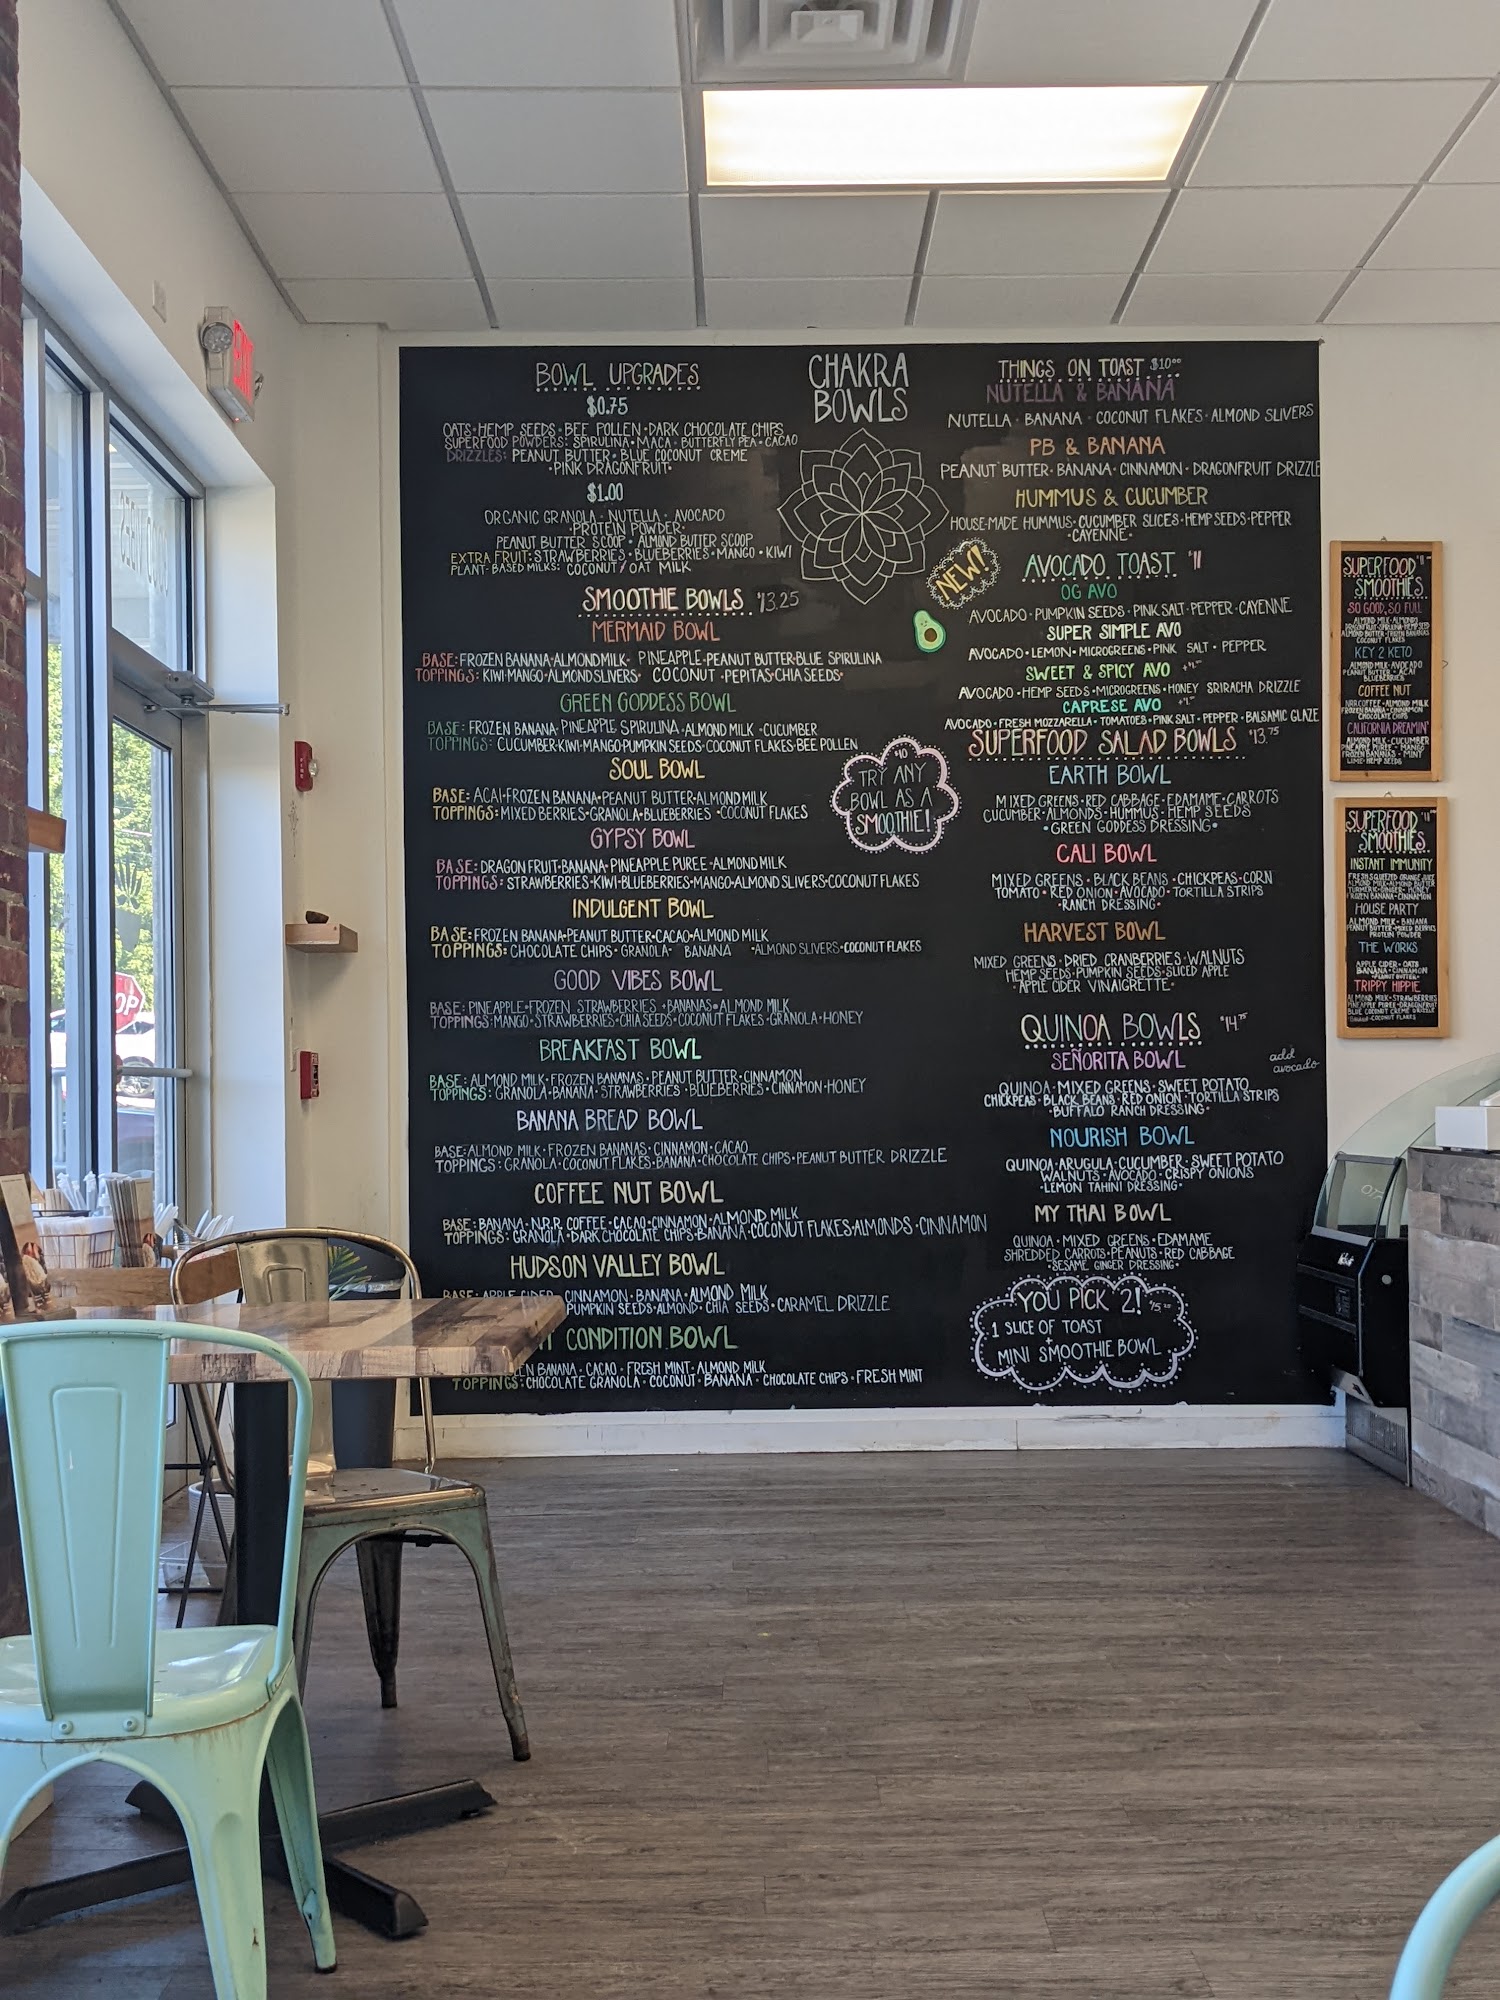 BOWL UPGRADES
$0.75
OATS · HEMP SEEDS · BEE POLLEN · DARK CHOCOLATE CHIPS
SUPERFOOD POWDERS: SPIRULINA · MACA · BUTTERFLY PEA · CACAO
DRIZZLES: PEANUT BUTTER · BLUE COCONUT CREME
· PINK DRAGONFRUIT ·
$1.00
ORGANIC GRANOLA · NUTELLA · AVOCADO
· PROTEIN POWDER ·
PEANUT BUTTER SCOOP · ALMOND BUTTER SCOOP
EXTRA FRUIT: STRAWBERRIES · BLUEBERRIES · MANGO · KIWI
PLANT-BASED MILKS: COCONUT / OAT MILK
SMOOTHIE BOWLS $13.25
MERMAID BOWL
BASE: FROZEN BANANA · ALMOND MILK · PINEAPPLE · PEANUT BUTTER · BLUE SPIRULINA
TOPPINGS: KIWI · MANGO · ALMOND SLIVERS · COCONUT · PEPITAS · CHIA SEEDS ·
GREEN GODDESS BOWL
BASE: FROZEN BANANA · PINEAPPLE SPIRULINA · ALMOND MILK · CUCUMBER
TOPPINGS: CUCUMBER · KIWI · MANGO · PUMPKIN SEEDS · COCONUT FLAKES · BEE POLLEN
SOUL BOWL
BASE: ACAI · FROZEN BANANA · PEANUT BUTTER · ALMOND MILK
TOPPINGS: MIXED BERRIES · GRANOLA · BLUEBERRIES · COCONUT FLAKES
GYPSY BOWL
BASE: DRAGON FRUIT · BANANA · PINEAPPLE PUREE · ALMOND MILK
TOPPINGS: STRAWBERRIES · KIWI · BLUEBERRIES · MANGO · ALMOND SLIVERS · COCONUT FLAKES
INDULGENT BOWL
BASE: FROZEN BANANA · PEANUT BUTTER · CACAO · ALMOND MILK
TOPPINGS: CHOCOLATE CHIPS · GRANOLA · BANANA · ALMOND SLIVERS · COCONUT FLAKES
GOOD VIBES BOWL
BASE: PINEAPPLE · FROZEN STRAWBERRIES · BANANAS · ALMOND MILK
TOPPINGS: MANGO · STRAWBERRIES · CHIA SEEDS · COCONUT FLAKES · GRANOLA · HONEY
BREAKFAST BOWL
BASE: ALMOND MILK · FROZEN BANANAS · PEANUT BUTTER · CINNAMON
TOPPINGS: GRANOLA · BANANA · STRAWBERRIES · BLUEBERRIES · CINNAMON · HONEY
BANANA BREAD BOWL
BASE: ALMOND MILK · FROZEN BANANAS · CINNAMON · CACAO
TOPPINGS: GRANOLA · COCONUT FLAKES · BANANA · CHOCOLATE CHIPS · PEANUT BUTTER DRIZZLE
COFFEE NUT BOWL
BASE: BANANA · N.R.R. COFFEE · CACAO · CINNAMON · ALMOND MILK
TOPPINGS: GRANOLA · DARK CHOCOLATE CHIPS · BANANA · COCONUT FLAKES · ALMONDS · CINNAMON
HUDSON VALLEY BOWL
BASE: APPLE CIDER · CINNAMON · BANANA · ALMOND MILK
PUMPKIN SEEDS · ALMOND · CHIA SEEDS · CARAMEL DRIZZLE
CONDITION BOWL
BANANA · CACAO · FRESH MINT · ALMOND MILK
TOPPINGS: CHOCOLATE GRANOLA · COCONUT · BANANA · CHOCOLATE CHIPS · FRESH MINT
CHAKRA
BOWLS
NEW!
$10
TRY ANY
BOWL AS A
SMOOTHIE!
THINGS ON TOAST $10.00
NUTELLA & BANANA
NUTELLA · BANANA · COCONUT FLAKES · ALMOND SLIVERS
PB & BANANA
PEANUT BUTTER · BANANA · CINNAMON · DRAGONFRUIT DRIZZLE
HUMMUS & CUCUMBER
HOUSE-MADE HUMMUS · CUCUMBER SLICES · HEMP SEEDS · PEPPER
· CAYENNE ·
AVOCADO TOAST $11
OG AVO
AVOCADO · PUMPKIN SEEDS · PINK SALT · PEPPER · CAYENNE
SUPER SIMPLE AVO
AVOCADO · LEMON · MICROGREENS · PINK SALT · PEPPER
SWEET & SPICY AVO
AVOCADO · HEMP SEEDS · MICROGREENS · HONEY SRIRACHA DRIZZLE
CAPRESE AVO
AVOCADO · FRESH MOZZARELLA · TOMATOES · PINK SALT · PEPPER · BALSAMIC GLAZE
SUPERFOOD SALAD BOWLS $13.75
EARTH BOWL
MIXED GREENS · RED CABBAGE · EDAMAME · CARROTS
CUCUMBER · ALMONDS · HUMMUS · HEMP SEEDS
· GREEN GODDESS DRESSING ·
CALI BOWL
MIXED GREENS · BLACK BEANS · CHICKPEAS · CORN
TOMATO · RED ONION · AVOCADO · TORTILLA STRIPS
· RANCH DRESSING ·
HARVEST BOWL
MIXED GREENS · DRIED CRANBERRIES · WALNUTS
HEMP SEEDS · PUMPKIN SEEDS · SLICED APPLE
· APPLE CIDER VINAIGRETTE ·
QUINOA BOWLS $14.75
SEÑORITA BOWL
add
avocado
QUINOA · MIXED GREENS · SWEET POTATO
CHICKPEAS · BLACK BEANS · RED ONION · TORTILLA STRIPS
· BUFFALO RANCH DRESSING ·
NOURISH BOWL
QUINOA · ARUGULA · CUCUMBER · SWEET POTATO
WALNUTS · AVOCADO · CRISPY ONIONS
· LEMON TAHINI DRESSING ·
MY THAI BOWL
QUINOA · MIXED GREENS · EDAMAME
SHREDDED CARROTS · PEANUTS · RED CABBAGE
· SESAME GINGER DRESSING ·
YOU PICK 2!
1 SLICE OF TOAST
+
MINI SMOOTHIE BOWL
SUPERFOOD
SMOOTHIES
SO GOOD, SO FULL
ALMOND MILK · ALMONDS
DRAGONFRUIT · SPIRULINA · HEMP SEED
ALMOND BUTTER · FROZEN BANANAS
COCONUT FLAKES
KEY 2 KETO
ALMOND MILK · AVOCADO
PEANUT BUTTER · ACAI
BLUEBERRIES
COFFEE NUT
NRR COFFEE · ALMOND MILK
FROZEN BANANA · CINNAMON
CHOCOLATE CHIPS
CALIFORNIA DREAMIN'
ALMOND MILK · CUCUMBER
PINEAPPLE PUREE · MANGO
FROZEN BANANAS · MINT
LIME · HEMP SEEDS
SUPERFOOD
SMOOTHIES
INSTANT IMMUNITY
FRESH SQUEEZED ORANGE JUICE
ALMOND MILK · ALMOND BUTTER
TURMERIC · GINGER · HONEY
FROZEN BANANA · CINNAMON
HOUSE PARTY
ALMOND MILK · BANANA
PEANUT BUTTER · MIXED BERRIES
PROTEIN POWDER
THE WORKS
APPLE CIDER · OATS
BANANA · CINNAMON
· PEANUT BUTTER ·
TRIPPY HIPPIE
ALMOND MILK · STRAWBERRIES
PINEAPPLE PUREE · DRAGONFRUIT
BLUE COCONUT CREME DRIZZLE
COCONUT FLAKES
EXIT
FIRE